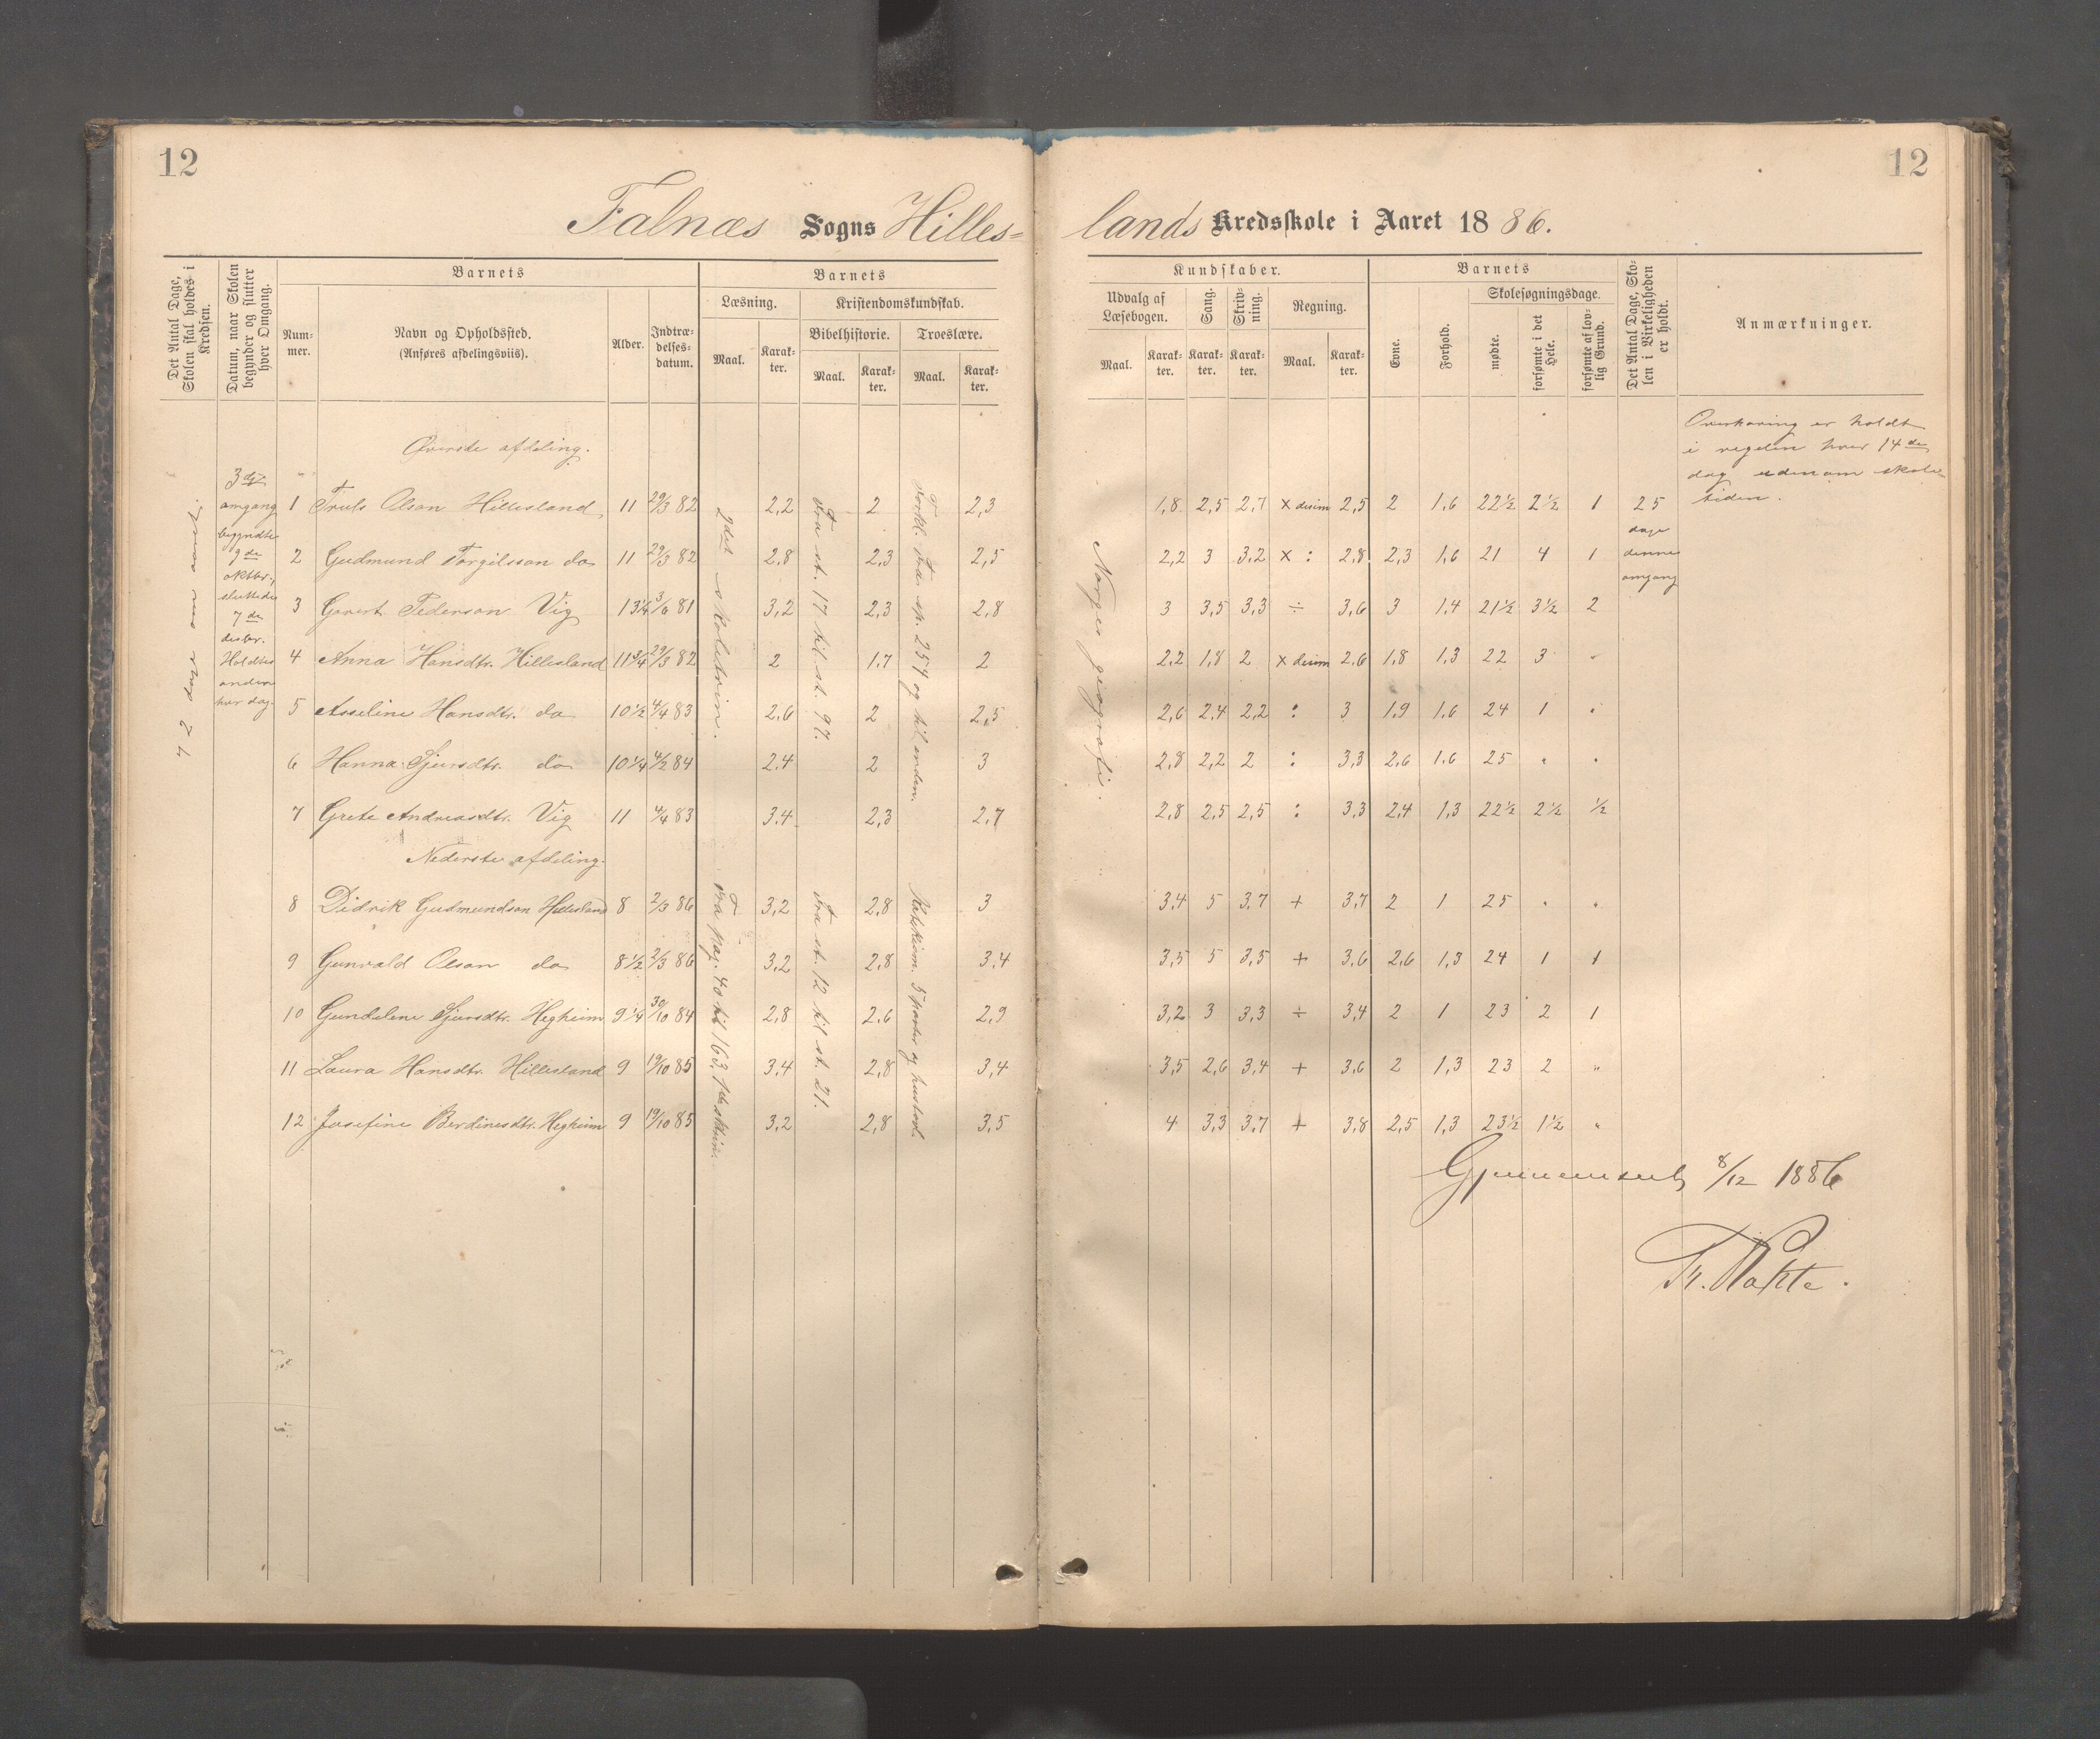 12
12
Falnæs Sogns Hilles=
lands Kredsskole i Aaret 1886.
Det Antal Dage, Skolen skal holdes i Kredsen.
Datum, naar Skolen begynder og slutter hver Omgang.
Barnets
Num-mer.
Navn og Opholdssted.
(Anføres afdelingsviis).
Alder.
Indtræ-delses-datum.
Barnets
Læsning.
Maal.
Karak-ter.
Kristendomskundskab.
Bibelhistorie.
Maal.
Karak-ter.
Troeslære.
Maal.
Karak-ter.
Kundskaber.
Udvalg af Læsebogen.
Maal.
Karak-ter.
Sang.
Karak-ter.
Skriv-ning.
Karak-ter.
Regning.
Maal.
Karak-ter.
Barnets
Evne.
Forhold.
Skolesøgningsdage.
mødte.
forsømte i det Hele.
forsømte af lov-lig Grund.
Det Antal Dage, Sko-len i Virkeligheden er holdt.
Anmærkninger.
Øverste afdeling.
3die
omgang
begyndte
9de
oktbr.,
sluttedes
7de
desbr.
Holdtes
anden
hver dag.
1 Truls Olson Hillesland, 11 29/3 82 2,2 2 2,3 1,8 2,5 2,7 x desim 2,5 2 1,6 22½ 2½ 1 25
2 Gudmund Torgilsson do 11 29/3 82 2,8 2,3 2,5 2,2 3 3,2 x : 2,8 2,3 1,6 21 4 1
3 Govert Pederson Vig 13¼ 3/6 81 3,2 2,3 2,8 3 3,5 3,3 ÷ 3,6 3 1,4 21½ 3½ 2
4 Anna Hansdtr. Hillesland 11¾ 29/3 82 2 1,7 2 2,2 1,8 2 x desim 2,6 1,8 1,3 22 3 "
5 Asseline Hansdtr. do 10½ 4/4 83 2,6 2 2,5 2,6 2,4 2,2 : 3 1,9 1,6 24 1 "
6 Hanna Sjursdtr. do 10¼ 4/2 84 2,4 2 3 2,8 2,2 2 : 3,3 2,6 1,6 25 " "
7 Grete Andreasdtr. Vig 11 4/4 83 3,4 2,3 2,7 2,8 2,5 2,5 : 3,3 2,4 1,3 22½ 2½ ½
Nederste afdeling.
8 Didrik Gudmundson Hillesland 8 2/3 86 3,2 2,8 3 3,4 5 3,7 + 3,7 2 1 25 " "
9 Gunvald Olson do 8½ 2/3 86 3,2 2,8 3,4 3,5 5 3,5 + 3,6 2,6 1,3 24 1 1
10 Gundeline Sjursdtr. Hegheim 9¼ 30/10 84 2,8 2,6 2,9 3,2 3 3,3 ÷ 3,4 2 1 23 2 1
11 Laura Hansdtr. Hillesland 9 19/10 85 3,4 2,8 3,4 3,5 2,6 3,4 + 3,6 2 1,3 23 2 "
12 Josefine Berdinesdtr. Hegheim 9 19/10 85 3,2 2,8 3,5 4 3,3 3,7 + 3,8 2,5 1,3 23½ 1½ "
2det skoletrin.
Fra st. 17 til st. 97.
Forkl. fra sp. 254 og til enden.
Fra pag. 40 til 163, 1ste sktrin.
Fra st. 12 til st. 21.
Katekism. 5 parter og hustavl.
Norges geografi.
dage
denne
omgang
Overhøring er holdt
i regelen hver 14de
dag udenom skole-
tiden.
Gjennemseet 8/12 1886